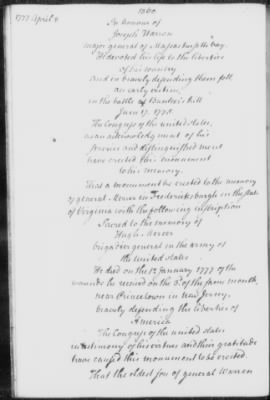 1777 April 8
In honour of
Joseph Warren
major general of Massachusetts bay.
He devoted his life to the liberties
of his country
and in bravely defending them fell
an early victim,
in the battle of Bunker's hill
June 17. 1775.
The Congress of the united states,
as an acknowledgment of his
services and distinguished merit
have erected this monument
to his memory.
That a monument be erected to the memory
of general Mercer in Fredericksburgh in the state
of Virginia with the following inscription
Sacred to the memory of
Hugh Mercer
brigadier general in the army of
the united states
He died on the 12 January 1777 of the
wounds he received on the 3d. of the same month,
near Princetown in new Jersey.
bravely defending the liberties of
America
The Congress of the united states
in testimony of his virtues and their gratitude
have caused this monument to be erected.
That the eldest son of general Warren